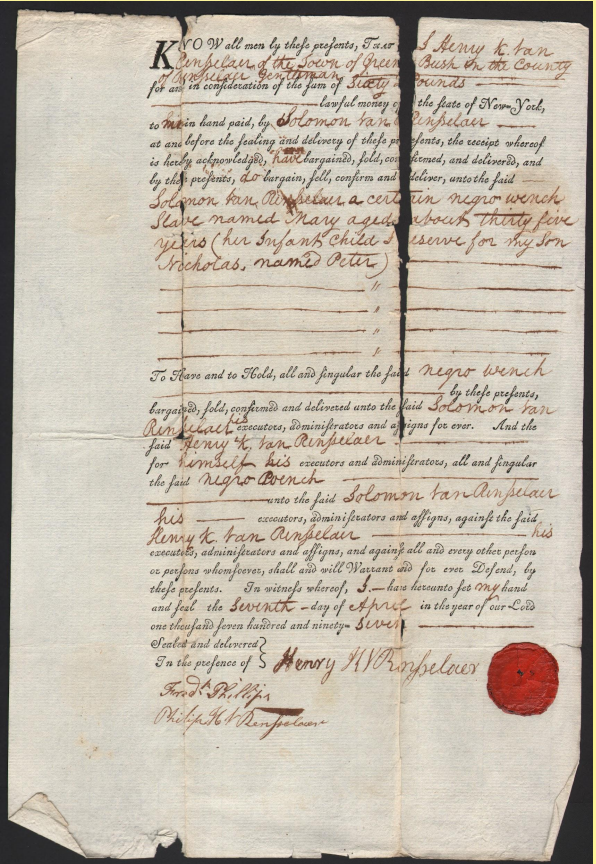 KNOW all men by these presents, THAT I Henry K. Van
Rensselaer of the Town of Green Bush in the County
of Rensselaer Gentleman
for and in consideration of the sum of Sixty Pounds
lawful money of the state of New-York,
to me in hand paid, by Solomon Van Rensselaer
at and before the sealing and delivery of these presents, the receipt whereof
is hereby acknowledged, have bargained, sold, confirmed, and delivered, and
by these presents, do bargain, sell, confirm and deliver, unto the said
Solomon Van Rensselaer a certain negro wench
Slave named Mary aged about thirty five
years (her Infant Child I reserve for my Son
Nicholas, named Peter)
"
"
"
"
To Have and to Hold, all and singular the said negro wench
by these presents,
bargained, sold, confirmed and delivered unto the said Solomon Van
Rensselaer his executors, administrators and assigns for ever. And the
said Henry K. Van Rensselaer
for himself his executors and administrators, all and singular
the said negro Wench
unto the said Solomon Van Rensselaer
his executors, administrators and assigns, against the said
Henry K. Van Rensselaer his
executors, administrators and assigns, and against all and every other person
or persons whomsoever, shall and will Warrant and for ever Defend, by
these presents. In witness whereof, I have hereunto set my hand
and seal the Seventh day of April in the year of our Lord
one thousand seven hundred and ninety-Seven
Sealed and delivered }
In the presence of } Henry K V Rensselaer
Fredk Phillips
Philip H V Rensselaer